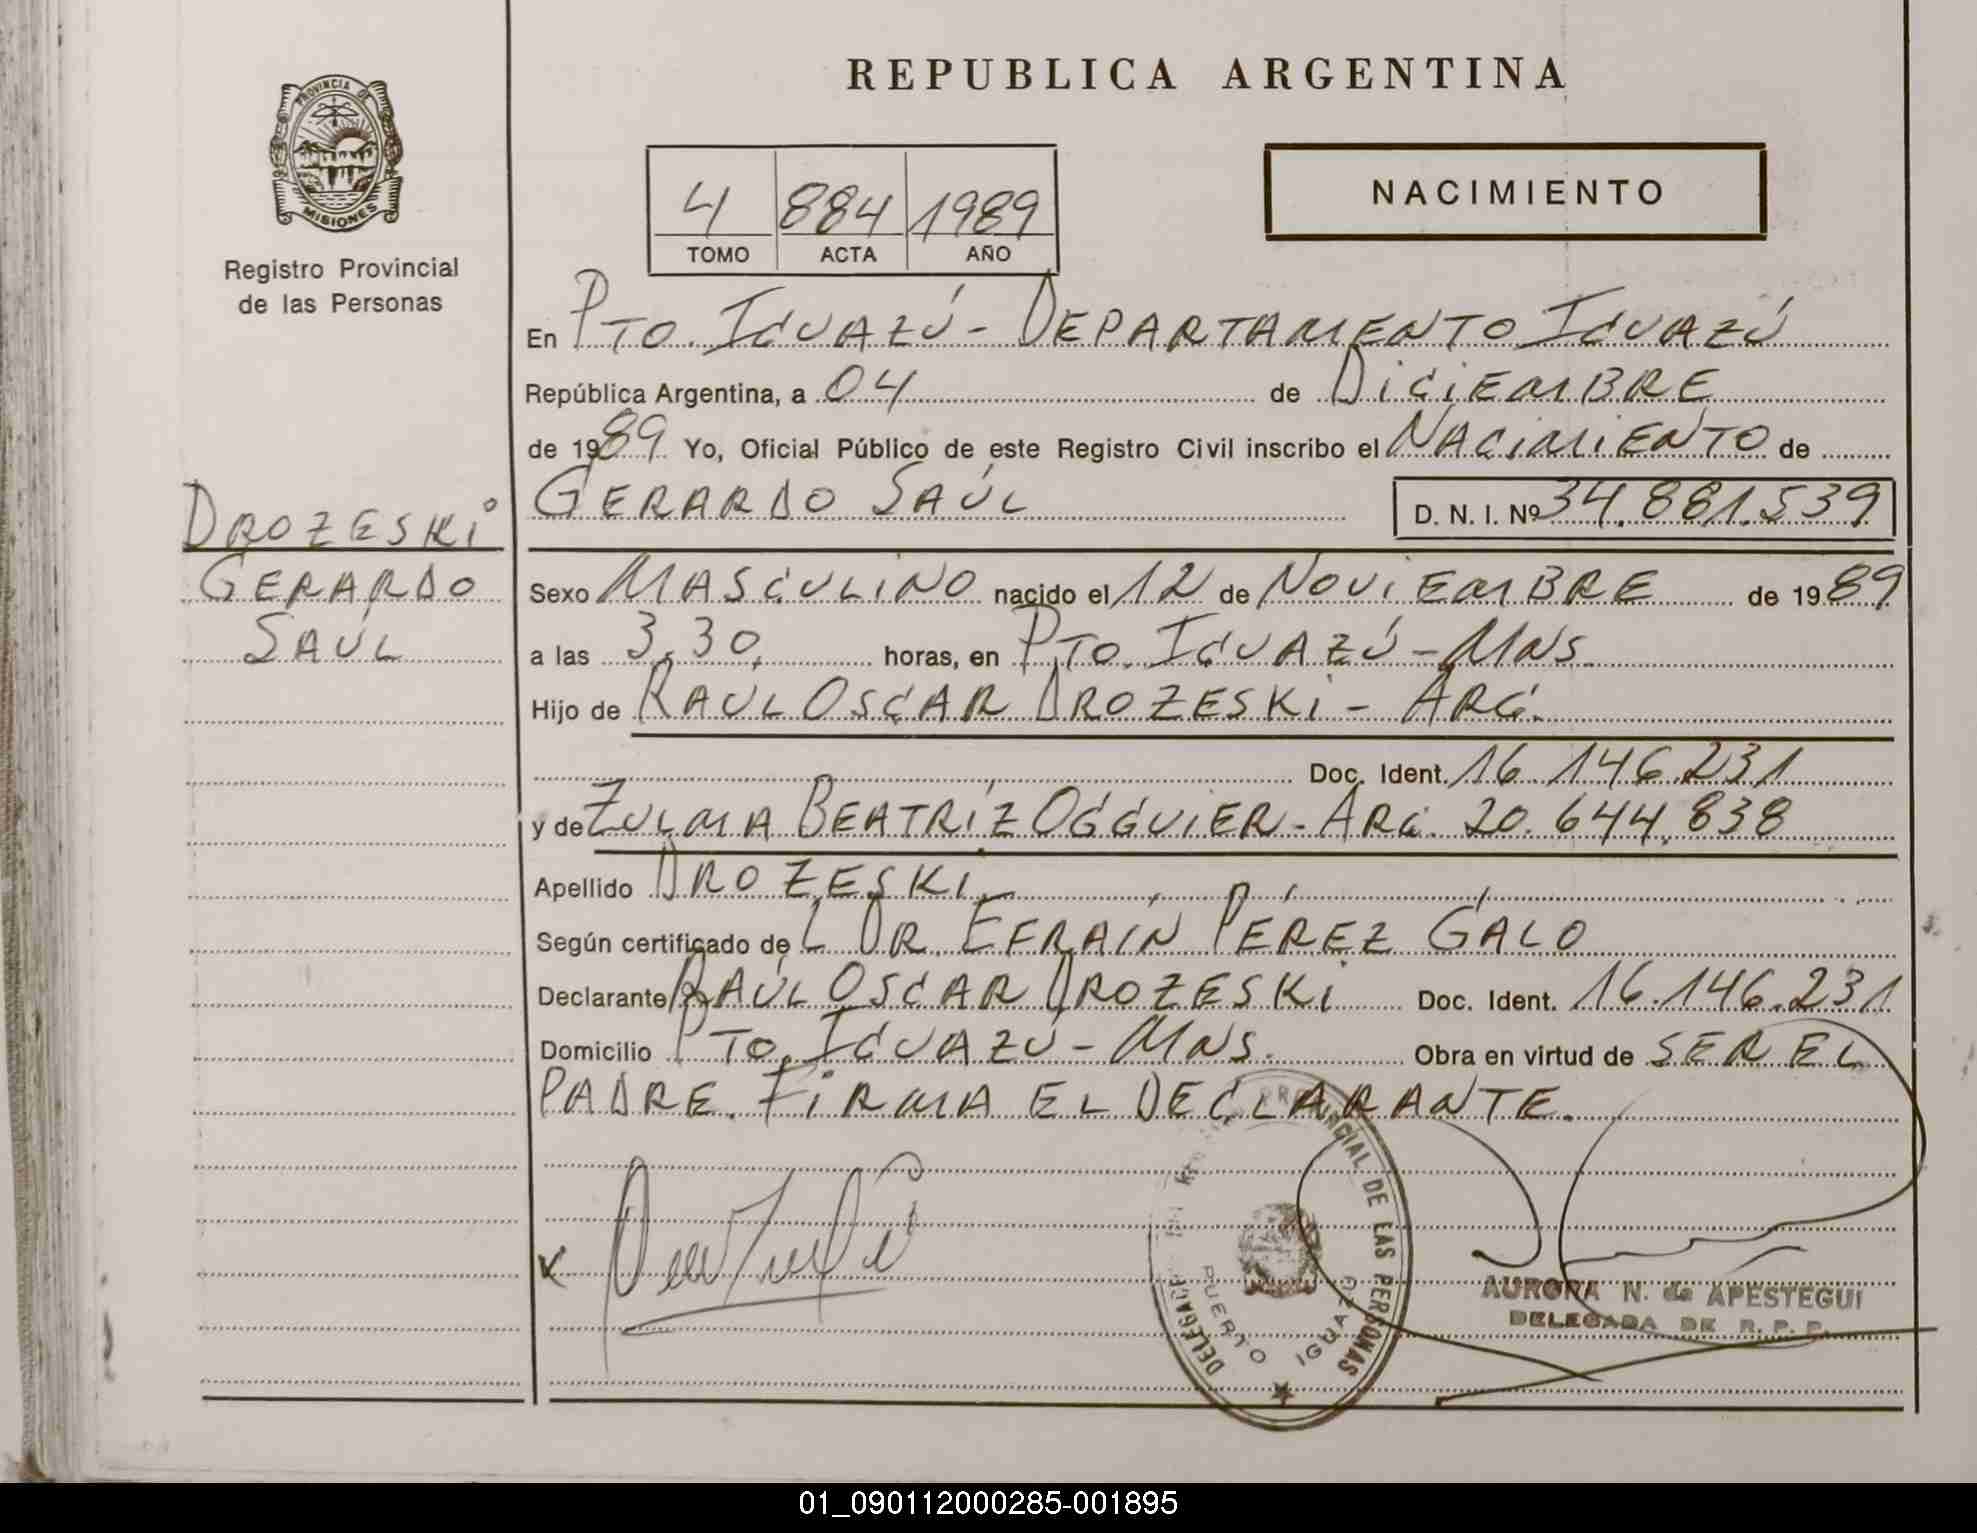 REPUBLICA ARGENTINA
PROVINCIA DE
MISIONES
Registro Provincial
de las Personas
4 884 1989
TOMO ACTA AÑO
NACIMIENTO
En PTO. IGUAZÚ - DEPARTAMENTO IGUAZÚ
República Argentina, a 04 de DICIEMBRE
de 1989 Yo, Oficial Público de este Registro Civil inscribo el NACIMIENTO de
GERARDO SAÚL D. N. I. Nº 34.881.539
DROZESKI
GERARDO
SAÚL
Sexo MASCULINO nacido el 12 de NOVIEMBRE de 1989
a las 3,30, horas, en PTO. IGUAZÚ - MNS.
Hijo de RAÚL OSCAR DROZESKI - ARG.
Doc. Ident. 16.146.231
y de ZULMA BEATRÍZ OGGUIER - ARG. 20.644.838
Apellido DROZESKI
Según certificado de L DR. EFRAÍN PÉREZ GALO
Declarante RAÚL OSCAR DROZESKI Doc. Ident. 16.146.231
Domicilio PTO. IGUAZÚ - MNS. Obra en virtud de SER EL
PADRE. FIRMA EL DECLARANTE.
PROVINCIAL DE LAS PERSONAS
PUERTO IGUAZÚ
AURORA N. de APESTEGUI
DELEGADA DE R. P. P.
01_090112000285-001895